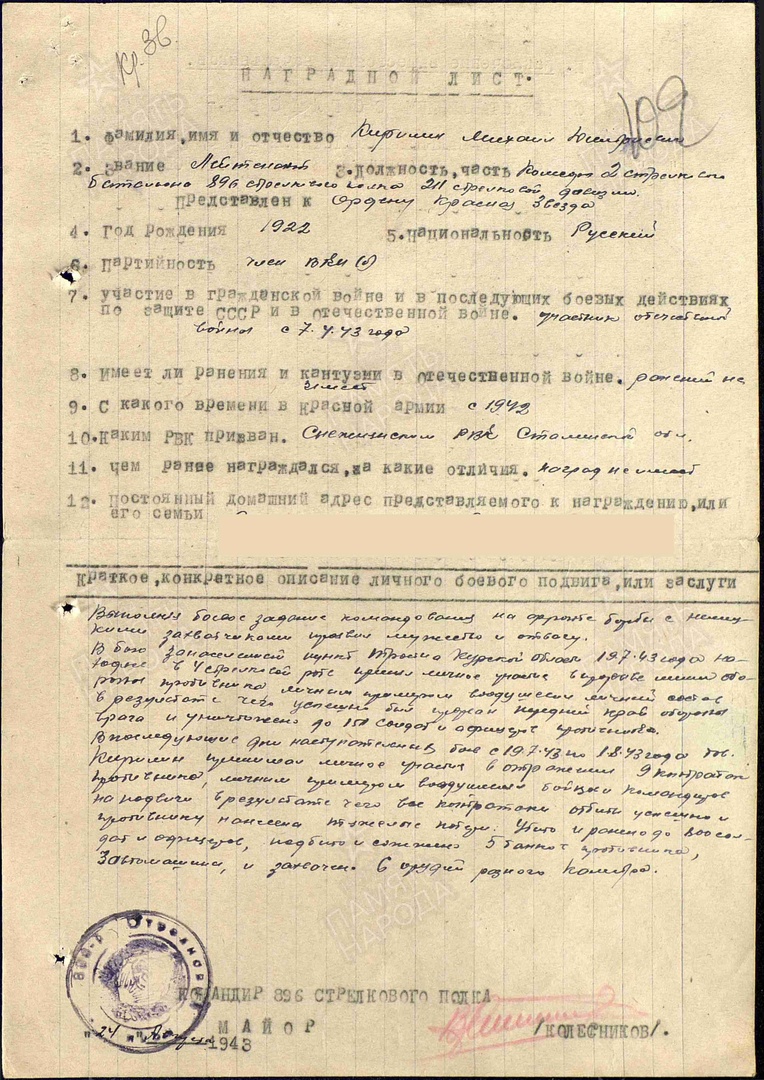 Кр. Зв.
НАГРАДНОЙ ЛИСТ.
109
1. Фамилия, имя и отчество Кирилин Михаил
2. Звание Лейтенант 3. Должность, часть Комсорг 2 стрелков
батальона 896 стрелкового полка 211 стрелковой дивизии.
Представлен к Ордену Красная Звезда
4. Год рождения 1922 5. Национальность Русский
6. Партийность член ВКП(б)
7. участие в гражданской войне и в последующих боевых действиях
по защите СССР и в отечественной войне. участник отечествен
войны с 7.
43 года
8. Имеет ли ранения и кантузии в отечественной войне. ранений не
имеет
9. С какого времени в Красной армии с 1942
10. Каким РВК призван. Снежнянским РВК Сталинской обл.
11. чем ранее награждался, за какие отличия. наград не имеет
12. Постоянный домашний адрес представляемого к награждению, или
его семьи
Краткое, конкретное описание личного боевого подвига, или заслуги
Выполняя боевое задание командования на фронте борьбы с немец-
кими захватчиками проявил мужество и отвагу.
В бою за населенный пункт Тросна Курской области 19.7.43 года на-
ходясь в 4 стрелковой роте принял личное участие в прорыве линии обо-
роны противника личным примером воодушевил личный состав
в результате чего успешно был прорван передний край обороны
врага и уничтожено до 150 солдат и офицеров противника.
В последующие дни наступательных боев с 19.7.43 по 1.8.43 года тов.
Кирилин принимал личное участие в отражении 9 контратак
противника, личным примером воодушевил бойцов и командиров
на подвиги в результате чего все контратаки отбиты успешно и
противнику нанесены тяжелые потери. Убито и ранено до 800 сол-
дат и офицеров, подбито и сожжено 5 танков противника,
3 автомашины, и захвачено 6 орудий разного калибра.
КОМАНДИР 896 СТРЕЛКОВОГО ПОЛКА
МАЙОР /КОЛЕСНИКОВ/.
"24" Августа 1943
ПАМЯТЬ НАРОДА